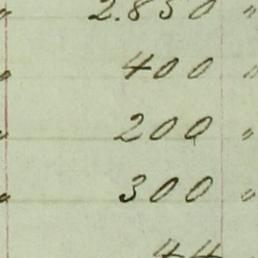 " 2.850 "
" 400 "
" 200 "
" 300 "
44